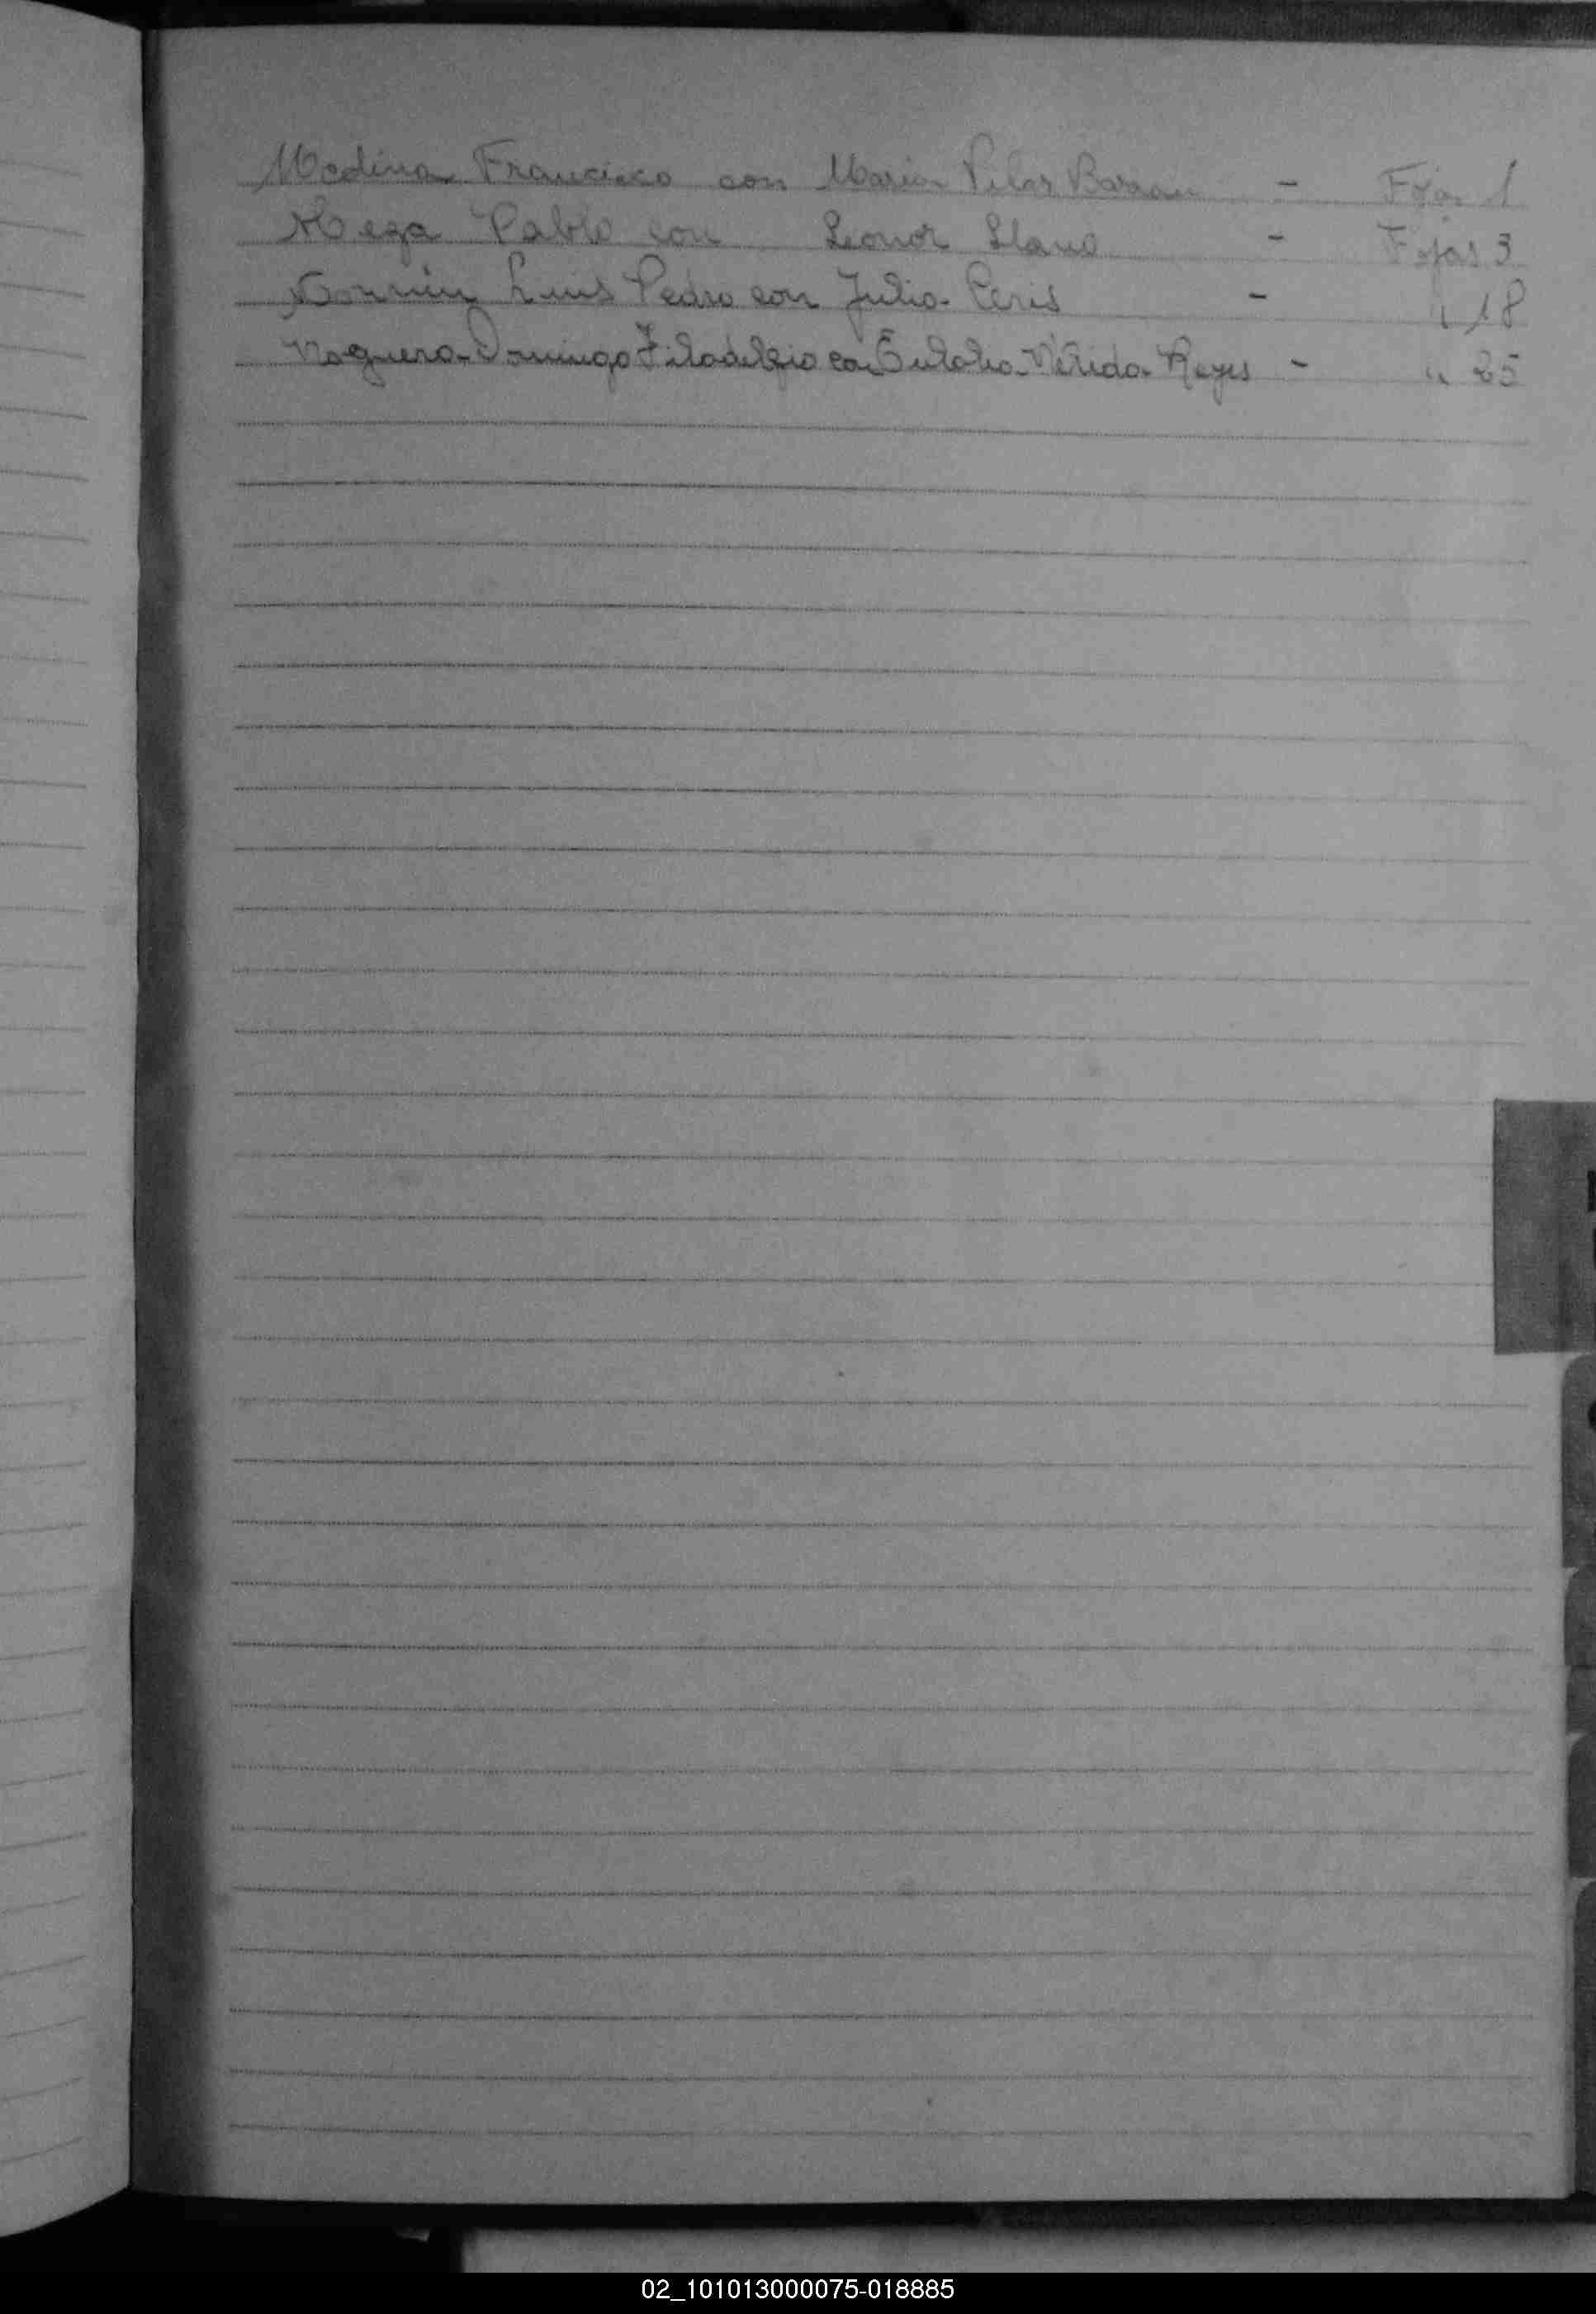 Medina Francisco con Maria Pilar Bazan - Fojas 1
Meza Pablo con Leonor Llano - Fojas 3
Luis Pedro con Julia Peris - " 18
Noguera Domingo Filadelfio con Eulalia Nélida Reyes - " 25
02_101013000075-018885